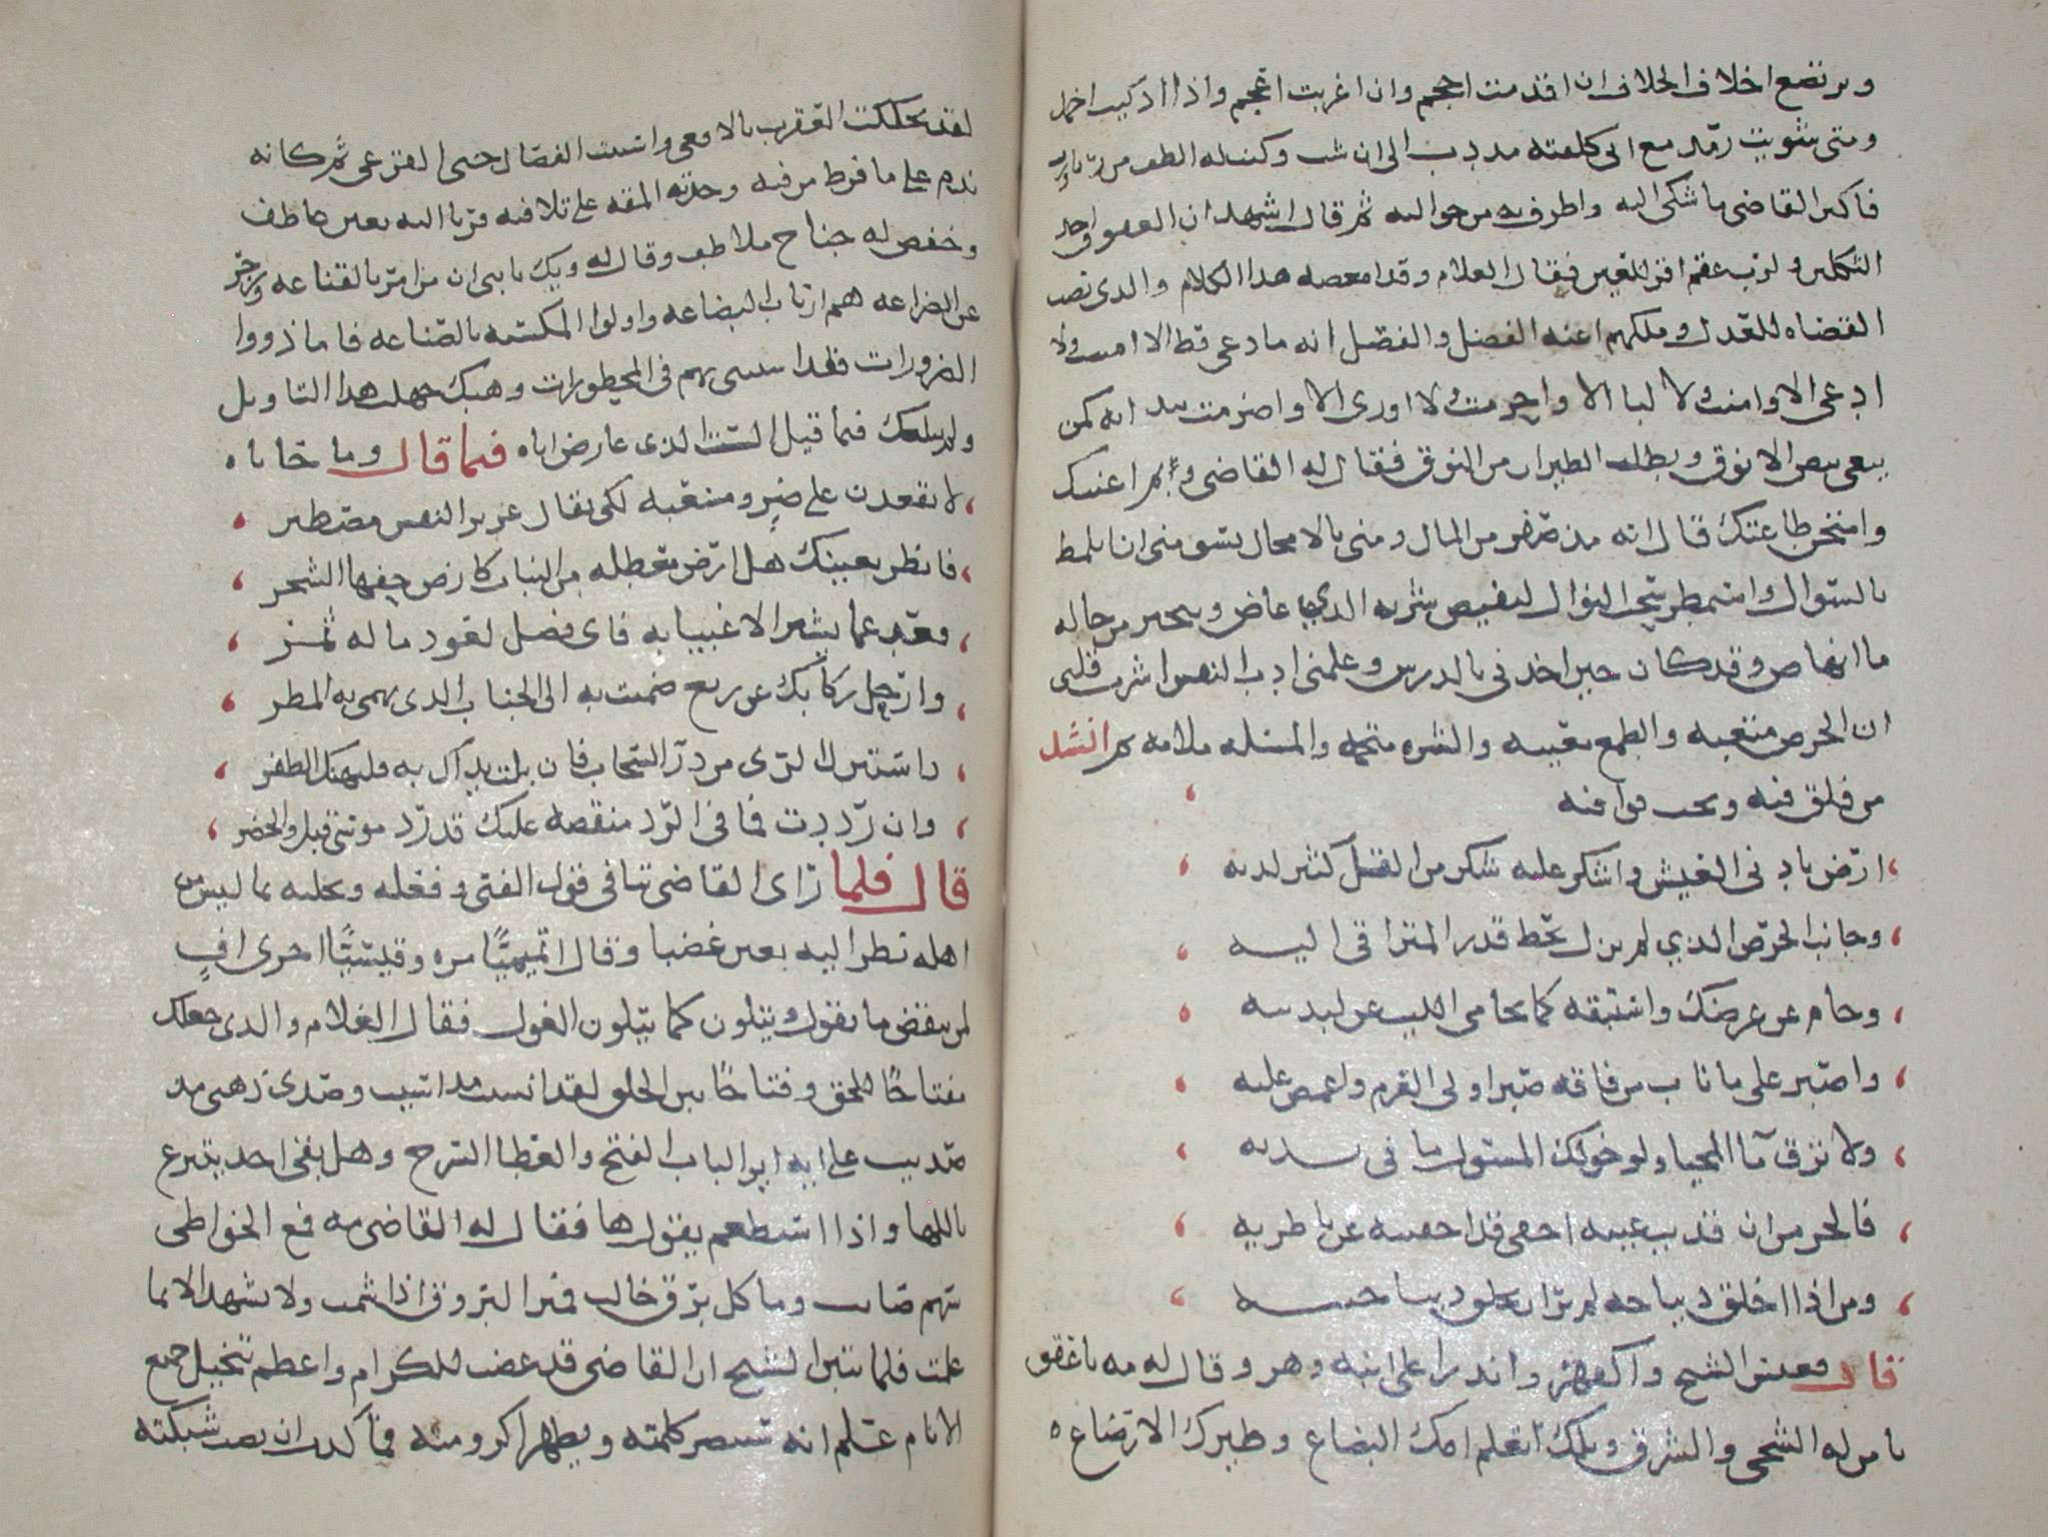 ويرتضع اخلاف الخلاف ان اقدمت احجم وان اعربت اعجم واذا اذكيت اخمد
ومتى شويت رمد مع انى كفلته مذ دب الى ان شب وكنت له الطف من ربا ورب
فاكبر القاضى ما شكى اليه واطرف به من حواليه ثم قال اشهد ان العقوق احد
الثكلين ولرب عقم اقر للعين فقال الغلام وقد امعضه هذا الكلام والذى نصب
القضاه للعدل وملكهم اعنه الفضل والفصل انه ما دعى قط الا امنت ولا
ادعى الا وامنت ولا لبا الا واحرمت ولا اورى الا واضرمت بيد انه كمن
يبغى بيض الانوق ويطلب الطيران من النوق فقال له القاضى وبم اعنتك
وامتحن طاعتك قال انه مذ صفر من المال ومنى بالامحال يسومنى ان اتلمظ
بالسوال واستمطر سحب النوال ليفيض شربه الذي غاض وينجبر من حاله
ما انهاض وقد كان حين اخذنى بالدرس وعلمنى ادب النفس اشرب قلبى
ان الحرص متعبه والطمع معيبه والشره متخمه والمسئله ملامه ثم انشد
من فلق فيه ونحت قوافيه
ارض بادنى العيش واشكر عليه شكر من القل كثير لديه
وجانب الحرص الذي لم يزل يحط قدر المتراقى اليه
وحام عن عرضك واستبقه كما يحامى الليث عن لبدتيه
واصبر على ما ناب من فاقه صبر اولى العزم واغمض عليه
ولا ترق ما المحيا ولو خولك المسئول ما فى يديه
فالحر من ان قذيت عينه اخفى قذا جفنيه عن ناظريه
ومن اذا اخلق ديباجه لم ير ان يخلق ديباجتيه
قال فعبس الشيخ واكفهر واندرا على ابنه وهر وقال له مه يا عقق
يا من له الشجى والشرق ويلك اتعلم امك البضاع وظيرك الارضاع
لقد تحككت العقرب بالافعى واستنت الفصال حتى القرعى ثم كانه
ندم على ما فرط من فيه وحدته المقه على تلافيه فرنا اليه بعين عاطف
وخفض له جناح ملاطف وقال له ويك يا بنى ان من امر بالقناعه وزجر
عن الضراعه هم ارباب البضاعه واولوا المكسبه بالصناعه فاما ذووا
الضرورات فقد استثنى بهم فى المحظورات وهبك جهلت هذا التاويل
ولم يبلغك فيما قيل الست الذى عارض اباه فيما قال وما حاباه
لا تقعدن على ضر ومسغبه لكى يقال عزيز النفس مصطبر
فانظر بعينيك هل ارض معطله من النبات كارض حفها الشجر
فعد عما يشير الاغبيا به فاى فضل لعود ما له ثمر
وارحل ركابك عن ربع ضمئت به الى الجناب الذى يهمى به المطر
واستنزل الرى من در السحاب فان بلت يداك به فليهنك الظفر
وان رددت فما فى الرد منقصه عليك قد رد موسى قبل والخضر
قال فلما راى القاضى تنافى قول الفتى وفعله وتحليه بما ليس من
اهله نظر اليه بعين غضبا وقال اتميميًا مره وقيسيًا اخرى افٍ
لمن ينقض ما يقول ويتلون كما يتلون الغول فقال الغلام والذى جعلك
مفتاحًا للحق وفتاحًا بين الخلق لقد انسيت مذ اسيت وصدى ذهنى مذ
صديت على انه اين الباب الفتح والعطا السرح وهل بقى احد يتبرع
باللها واذا استطعم يقول ها فقال له القاضى مه فمع الخواطى
سهم صايب وما كل برق خالب فميز البروق اذا شمت ولا تشهد الا بما
علمت فلما تبين الشيخ ان القاضى قد غضب للكرام واعظم تبخيل جميع
الانام علم انه سينصر كلمته ويظهر اكرومته فما كذب ان نصب شبكته